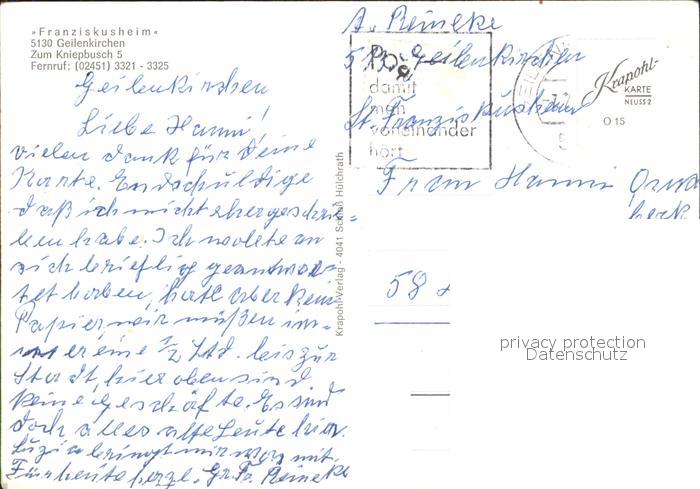 »Franziskusheim«
5130 Geilenkirchen
Zum Kniepbusch 5
Fernruf: (02451) 3321 - 3325
Geilenkirchen
Liebe Hanni!
vielen Dank für Deine
Karte. Endschuldige
daß ich nicht eher geschrie-
ben habe. Ich wolete an
sich brieflig geantwor-
tet haben, hatte aber kein
Papier wir müßen im-
mer eine ½ Std. bis zur
Stadt, hier oben sind
keine Geschäfte. Es sind
doch alles alte Leute hier.
bringt mir was mit.
Für heute herzl. Gr. Fr. Reineke
Krapohl-Verlag - 4041 Schloß Hülchrath
A. Reineke
Geilenkirchen
St. Franziskusheim
damit
man
voneinander
hört
Krapohl-
KARTE
NEUSS 2
O 15
Frau Hanni
beck
58
privacy protection
Datenschutz